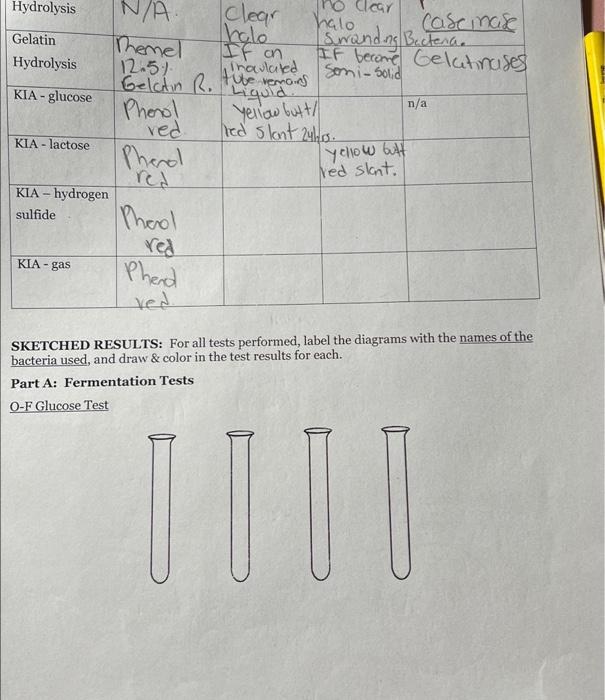 Hydrolysis N/A. Clear halo no clear halo Swranding Bacteria. caseinase
Gelatin Hydrolysis Themel 12.5% Gelatin R. If an inoculated tube remains Liquid. If become Semi-solid Gelatinases
KIA - glucose Phenol red yellow butt/ red slant 24hrs. n/a
KIA - lactose Phenol red yellow butt red slant.
KIA – hydrogen sulfide Phenol red
KIA - gas Phenol red
SKETCHED RESULTS: For all tests performed, label the diagrams with the names of the
bacteria used, and draw & color in the test results for each.
Part A: Fermentation Tests
O-F Glucose Test